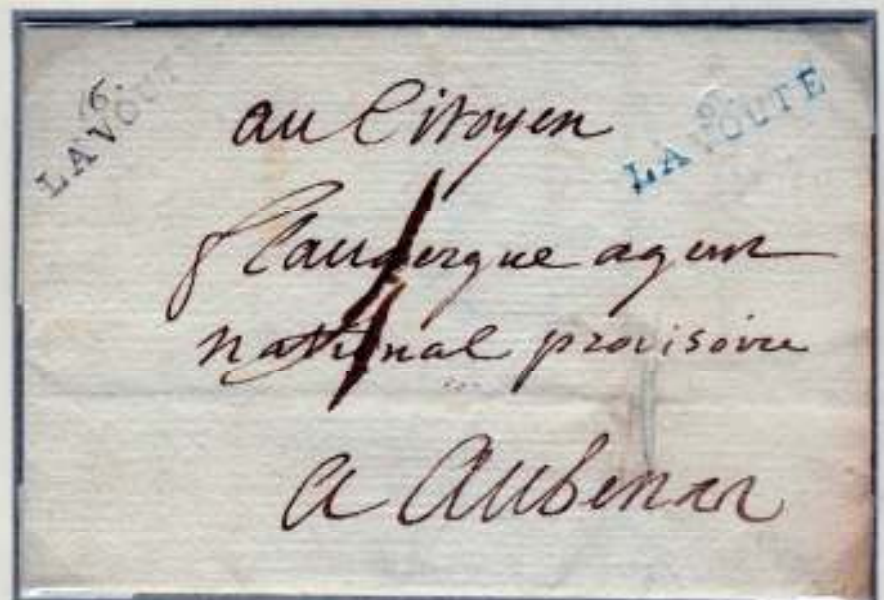 6.
LAVOUTE
LAVOUTE
au Citoyen
flaugergue agent
national provisoire
a Aubenas